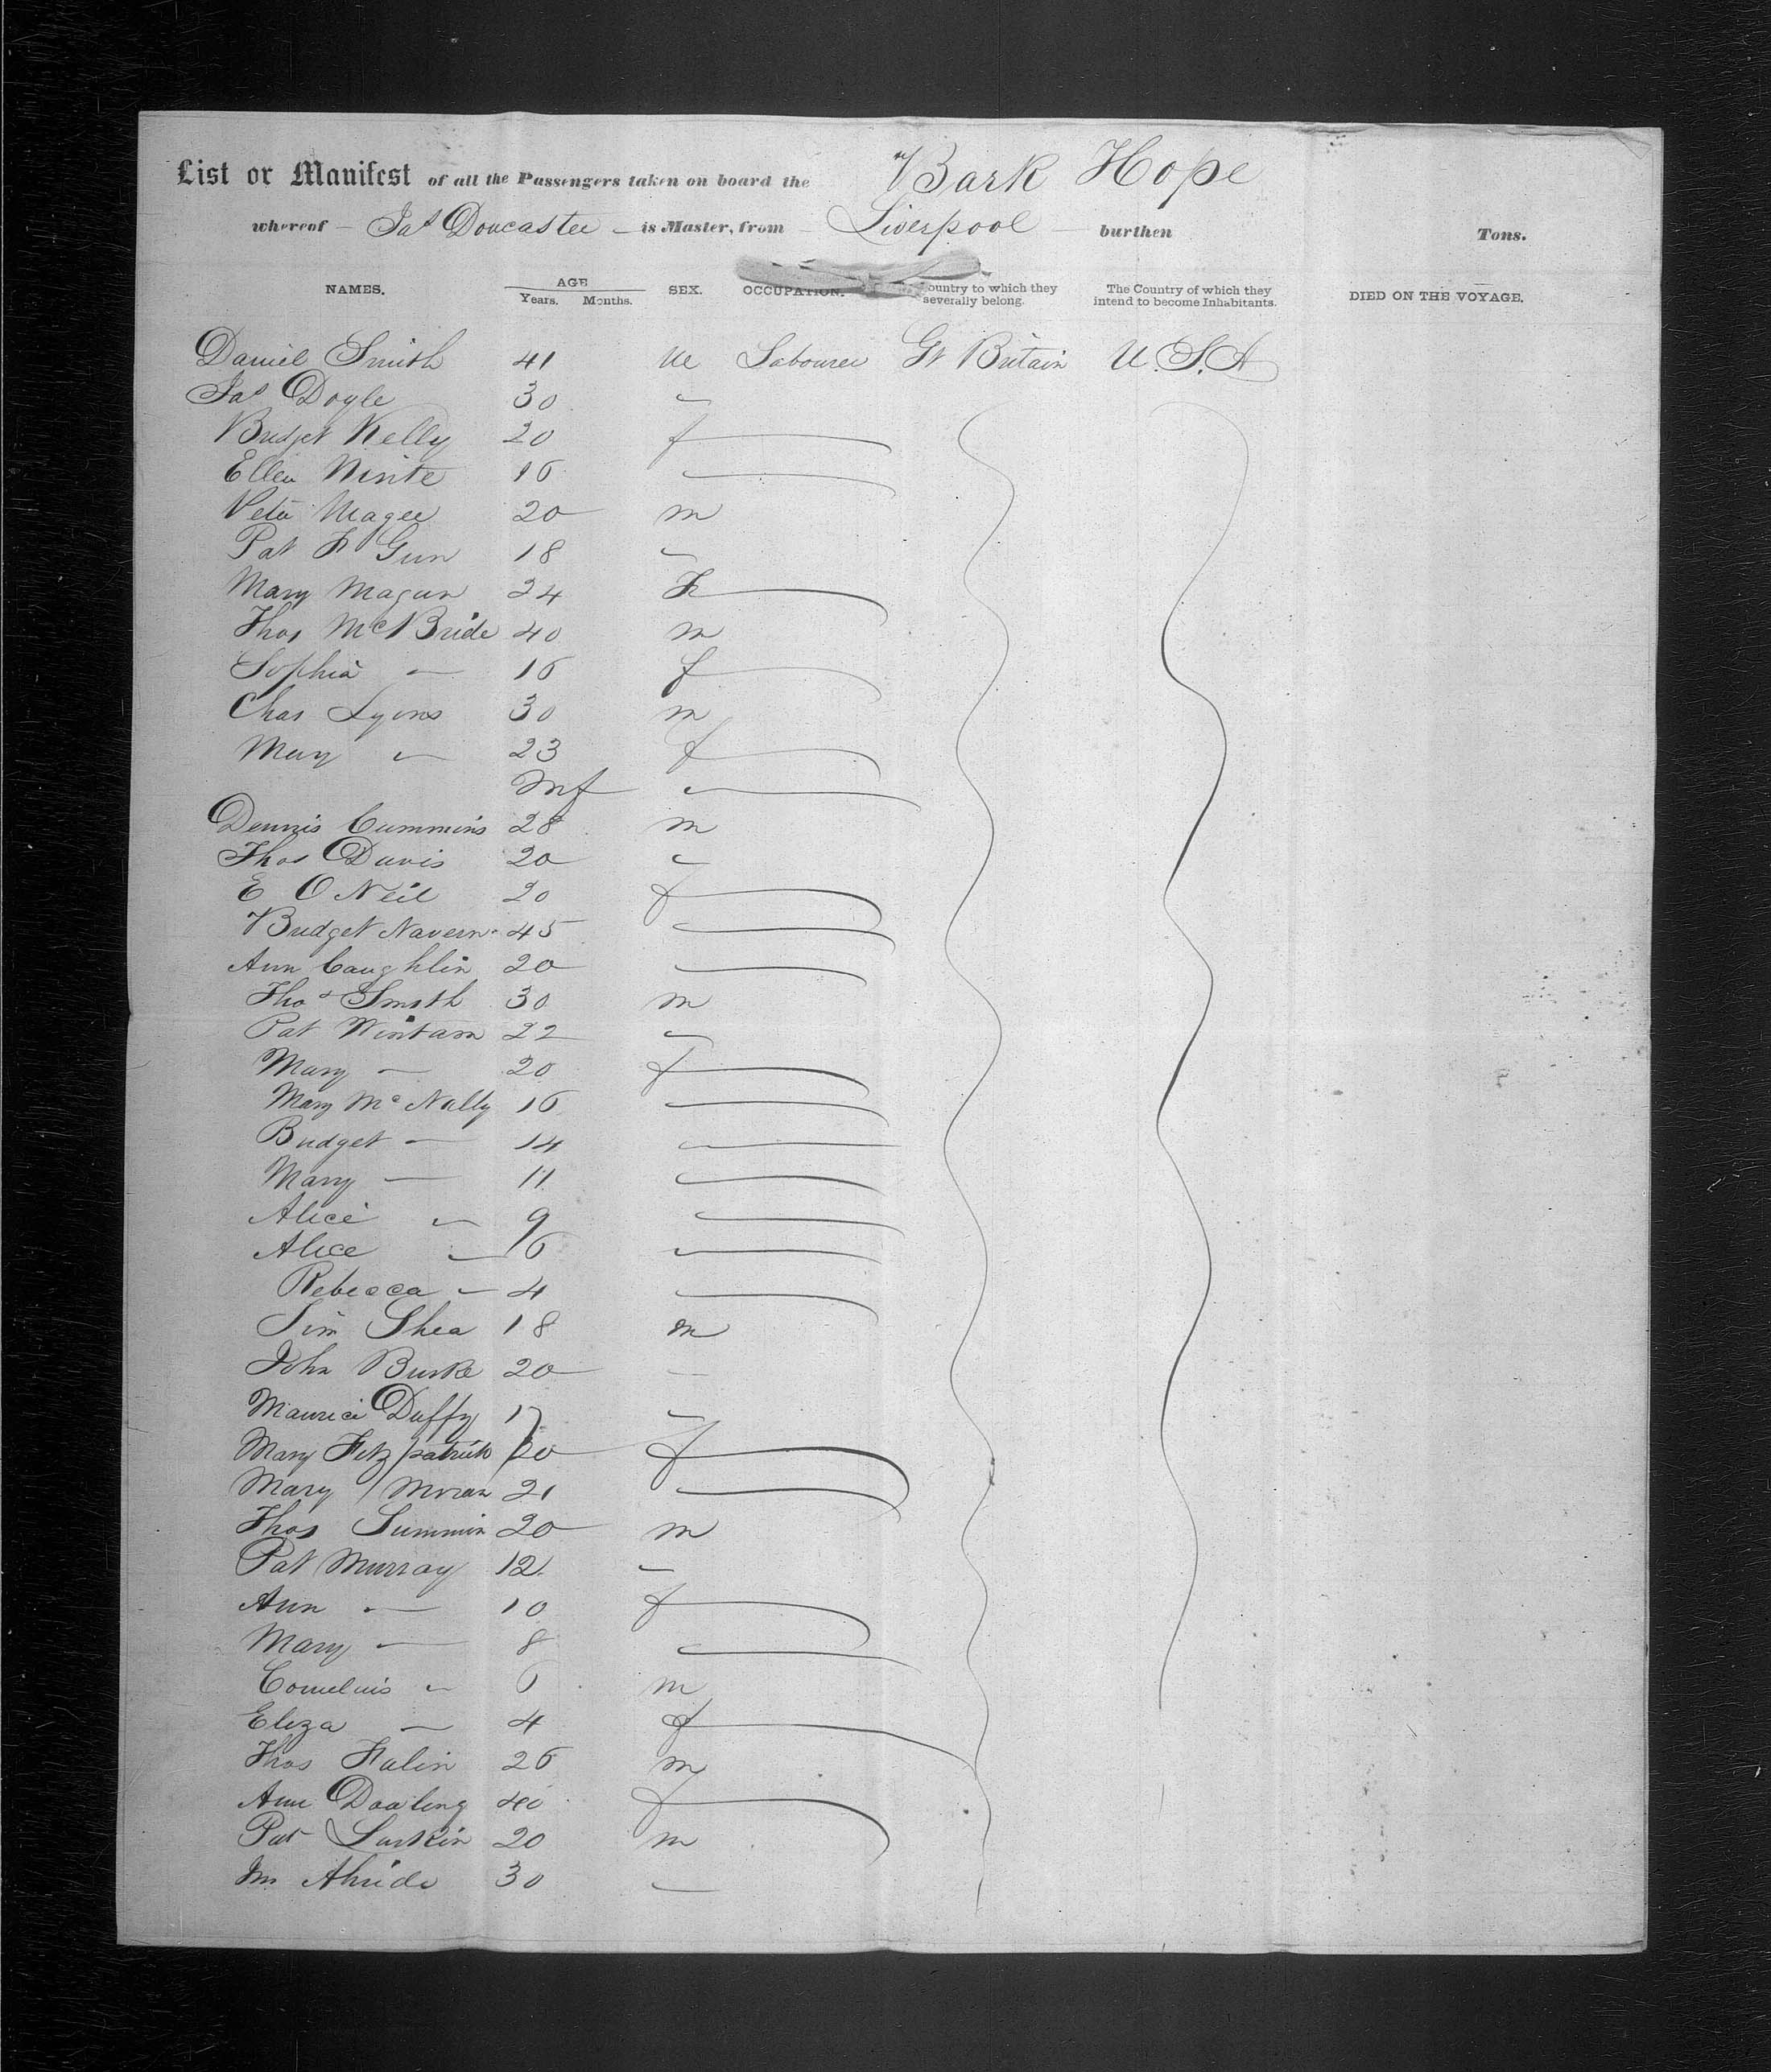 List or Manifest of all the Passengers taken on board the Bark Hope
whereof Jas Doncaster is Master, from Liverpool burthen Tons.
NAMES. AGE Years. Months. SEX. OCCUPATION. Country to which they severally belong. The Country of which they intend to become Inhabitants. DIED ON THE VOYAGE.
Daniel Smith 41 M Labourer Gt Britain U.S.A
Jas Doyle 30
Bridget Kelly 20 f
Ellen 16
Peter Magee 20 m
Pat Gun 18
Mary Magan 24 F
Thos McBride 40 m
Sophia — 16 f
Chas Lyons 30 m
Mary — 23 f
Inf
Dennis Cummins 28 m
Thos Davis 20
E O Neil 20 f
Bridget Navern 45
Ann Caughlin 20
Thos Smith 30 m
Pat Wintam 22
Mary — 20 f
Mary McNally 16
Bridget — 14
Mary — 11
Alice — 9
Alice — 6
Rebecca — 4
Tim Shea 18 m
John Burke 20
Maurice Duffy 17
Mary Fitzpatrick 20 f
Mary Moran 21
Thos 20 m
Pat Murray 12
Ann — 10 f
Mary — 8
Cornelius — 6 m
Eliza — 4 f
Thos Falin 26 m
Ann Dooling 40 f
Pat Larkin 20 m
30